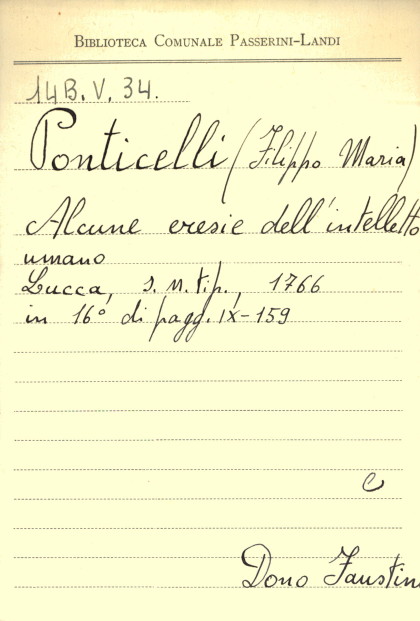 BIBLIOTECA COMUNALE PASSERINI-LANDI
14B.V.34.
Ponticelli (Filippo Maria)
Alcune eresie dell'intelletto
umano
Lucca, s.n.tip., 1766
in 16° di pagg. IX-159
C
Dono Faustin